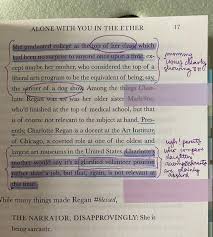 ALONE WITH YOU IN THE ETHER 17
She graduated college at the top of her class, which
had been no surprise to anyone once upon a time, ex-
cept maybe her mother, who considered the top of a
liberal arts program to be the equivalent of being, say,
the winner of a dog show. Among the things Char-
lotte Regan was not was her older sister Madeline,
who'd finished at the top of medical school, but that
is of course not relevant to the subject at hand. Pres-
ently, Charlotte Regan is a docent at the Art Institute
of Chicago, a coveted role at one of the oldest and
largest art museums in the United States. Charlotte's
mother would say it's a glorified volunteer position
rather than a job, but that, again, is not relevant at
this time.
While many things made Regan #blessed,
THE NARRATOR, DISAPPROVINGLY: She is
being sarcastic.
mommy
issues clearly
showing
ugh! parents
who compare
daughters
accomplishments